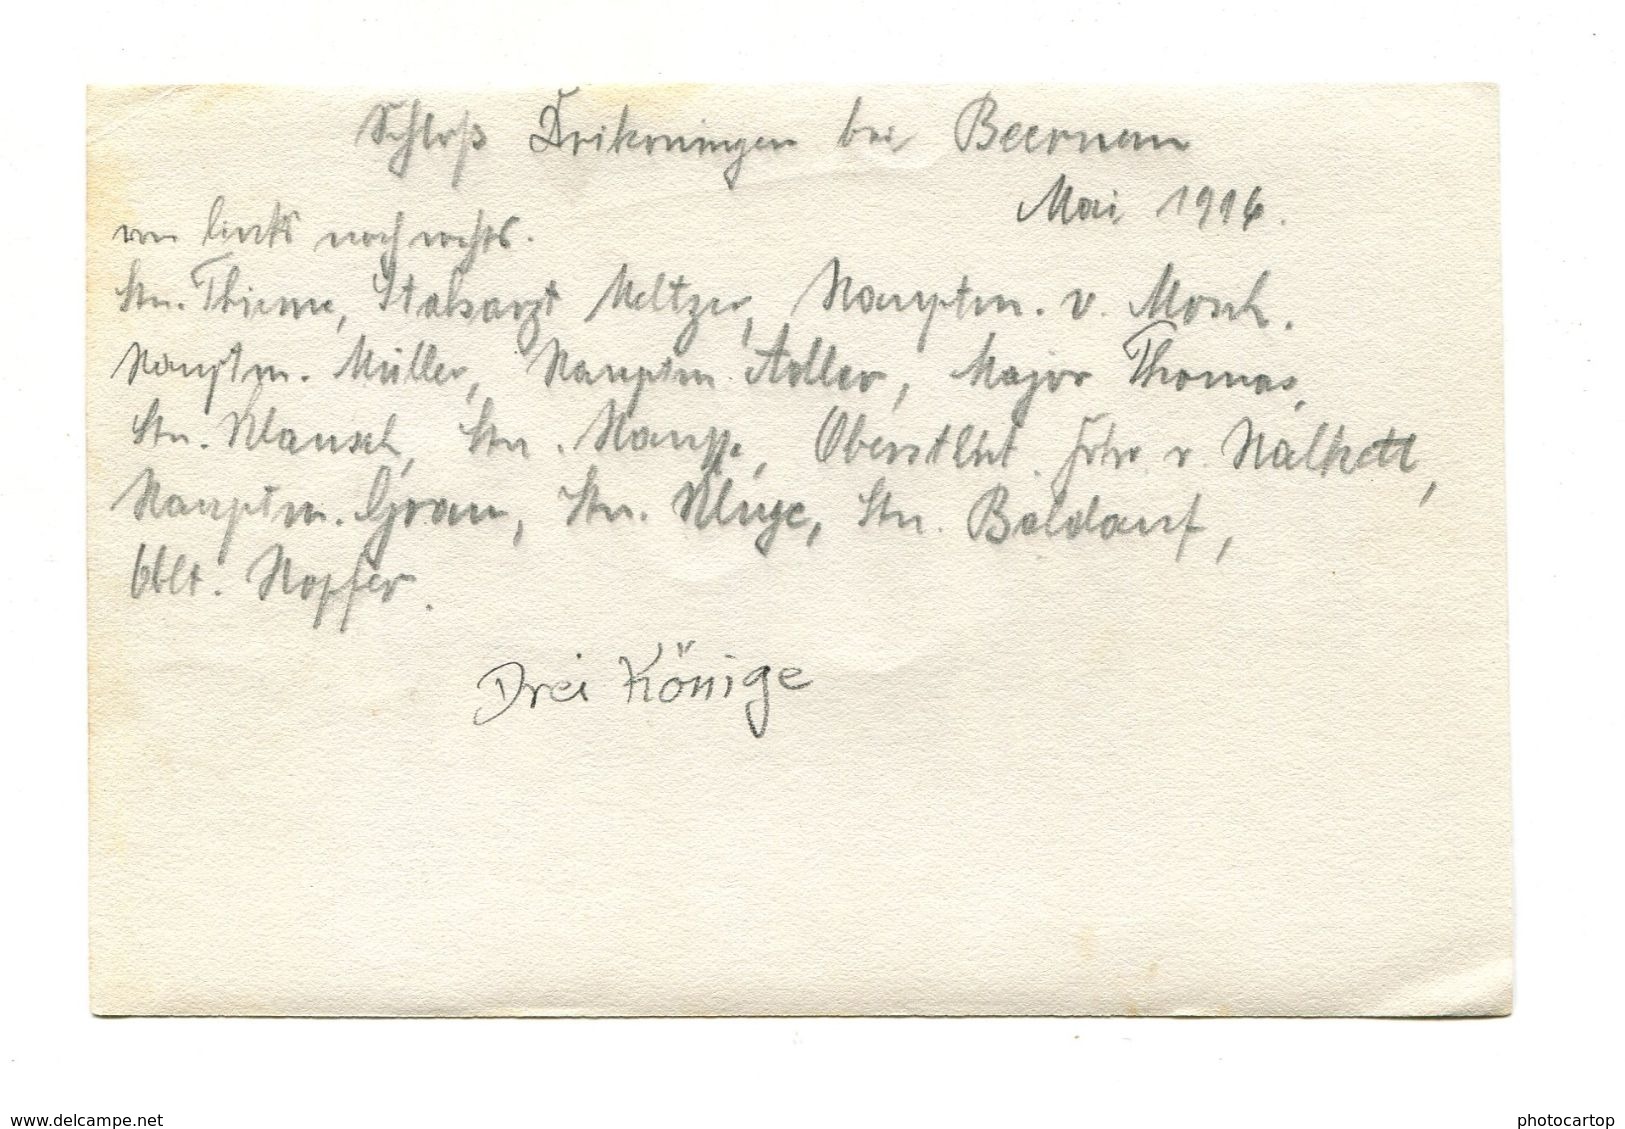 Schloß Drikoningen bei Beernem
Mai 1916.
von links nach rechts.
Ltn. Thieme, Stabsarzt Meltzer, Hauptm. v. Mosch.
Hauptm. Müller, Hauptm. Adler, Major Thomas,
Ltn. Klausch, Ltn. Hauffe, Oberstlnt. Frhr v. Halkett,
Hauptm. Grau, Ltn. Kluge, Ltn. Baldauf,
Oblt. Hopfer.
Drei Könige
www.delcampe.net
photocartop